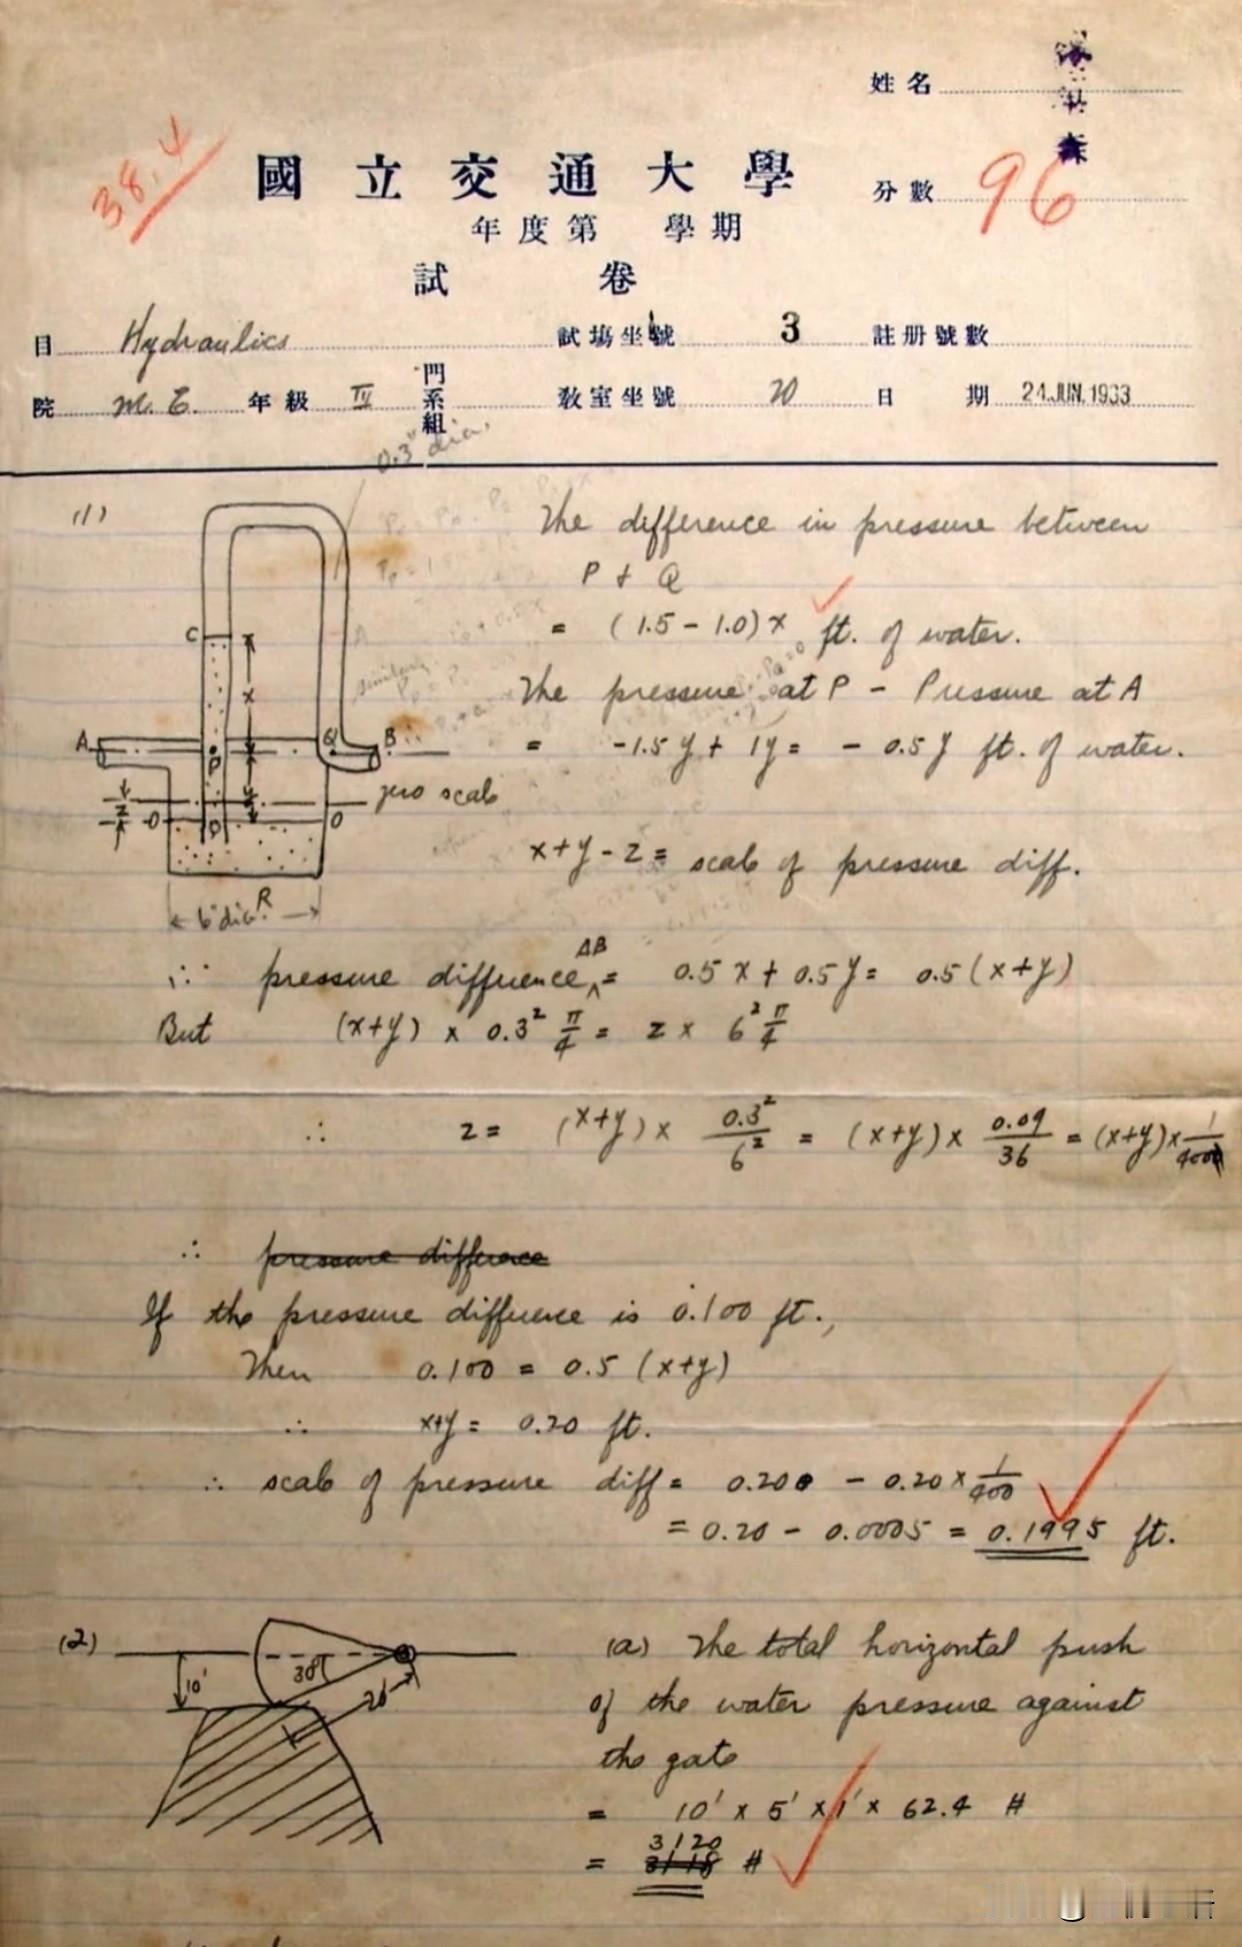 姓名
38.4
國立交通大學
分數 96
年度第 學期
試 卷
目 Hydraulics 試塲坐號 3 註册號數
院 M.E. 年級 IV 門系組 教室坐號 20 日期 24.JUN.1933
0.3" dia.
(1)
The difference in pressure between
P + Q
= (1.5 - 1.0)x ft. of water.
The pressure at P - Pressure at A
= -1.5y + 1y = - 0.5y ft. of water.
C
x
A
P
Q
B
zero scale
z
O
D
O
y
R
6" dia.
x+y-z = scale of pressure diff.
∴ pressure difference AB = 0.5x + 0.5y = 0.5(x+y)
But (x+y) x 0.3² π/4 = z x 6² π/4
∴ z = (x+y) x 0.3²/6² = (x+y) x 0.09/36 = (x+y) x 1/400
∴ pressure difference
If the pressure difference is 0.100 ft.,
Then 0.100 = 0.5 (x+y)
∴ x+y = 0.20 ft.
∴ scale of pressure diff = 0.200 - 0.20 x 1/400
= 0.20 - 0.0005 = 0.1995 ft.
(2)
10'
30°
20'
(a) The total horizontal push
of the water pressure against
the gate
= 10' x 5' x 1' x 62.4 #
= 3120 #